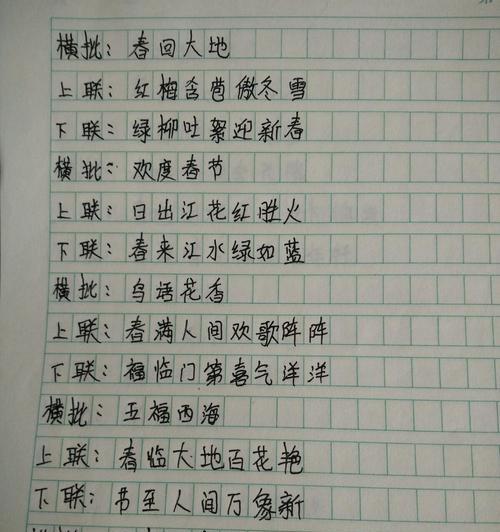 横批：春回大地
上联：红梅含苞傲冬雪
下联：绿柳吐絮迎新春
横批：欢度春节
上联：日出江花红胜火
下联：春来江水绿如蓝
横批：鸟语花香
上联：春满人间欢歌阵阵
下联：福临门第喜气洋洋
横批：五福四海
上联：春临大地百花艳
下联：节至人间万象新